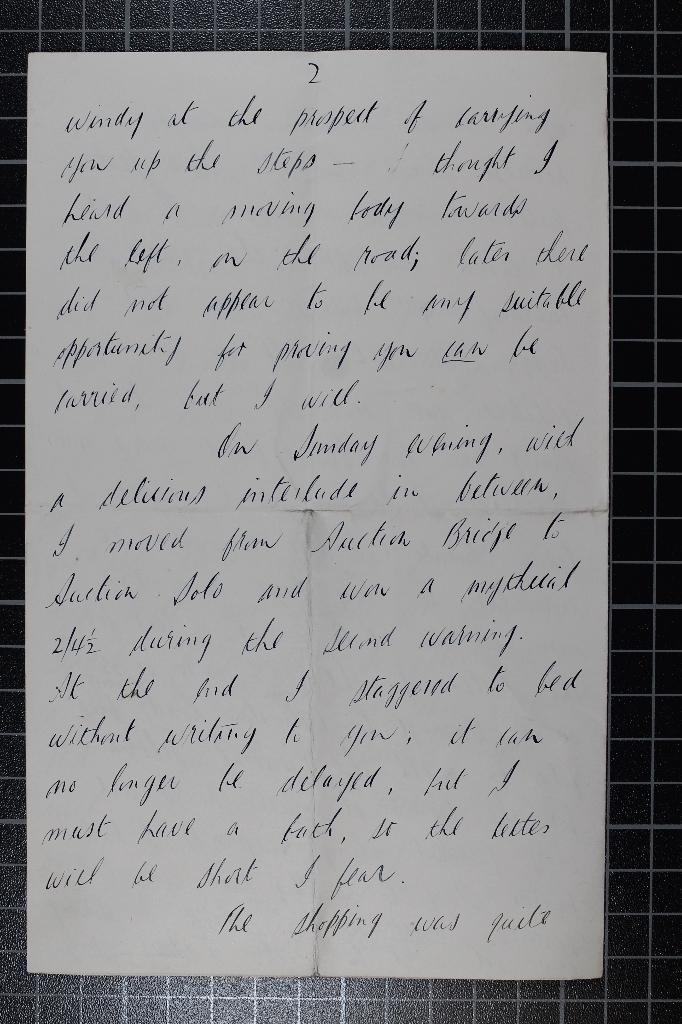 2
windy at the prospect of carrying
you up the steps — I thought I
heard a moving body towards
the left, on the road; later there
did not appear to be any suitable
opportunity for proving you can be
carried, but I will.
On Sunday evening, with
a delicious interlude in between,
I moved from Auction Bridge to
Auction Solo and won a mythical
2/4½ during the second warning.
At the end I staggered to bed
without writing to you; it can
no longer be delayed, but I
must have a bath, so the letter
will be short I fear.
The shopping was quite